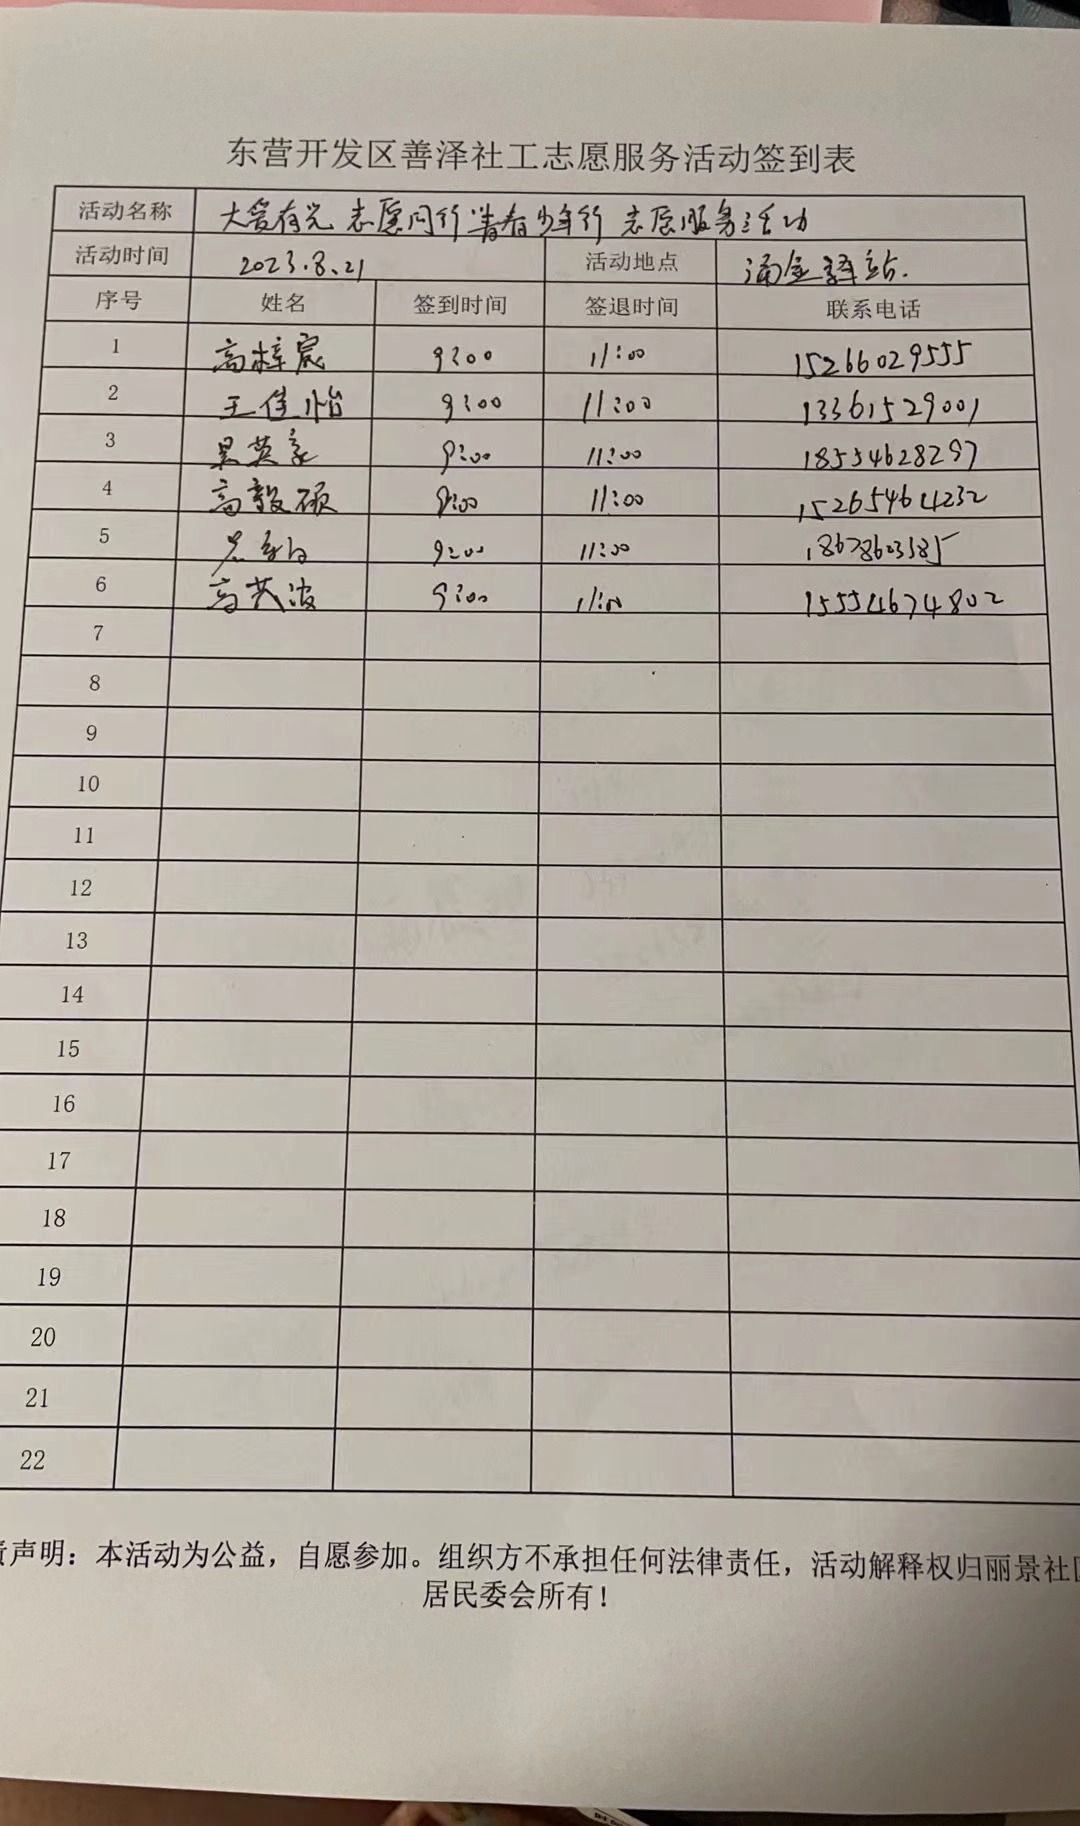 东营开发区善泽社工志愿服务活动签到表
活动名称 大爱有光 志愿同行 青春少年行 志愿服务活动
活动时间 2023.8.21 活动地点 涌金驿站.
序号 姓名 签到时间 签退时间 联系电话
1 高梓宸 9:00 11:00 15266029555
2 王佳怡 9:00 11:00 13361529001
3 吴英豪 9:00 11:00 18554628297
4 高毅硕 9:00 11:00 15265464232
5 9:00 11:00 18678603585
6 高英波 9:00 11:00 15554674802
7
8
9
10
11
12
13
14
15
16
17
18
19
20
21
22
责声明：本活动为公益，自愿参加。组织方不承担任何法律责任，活动解释权归丽景社区
居民委会所有！